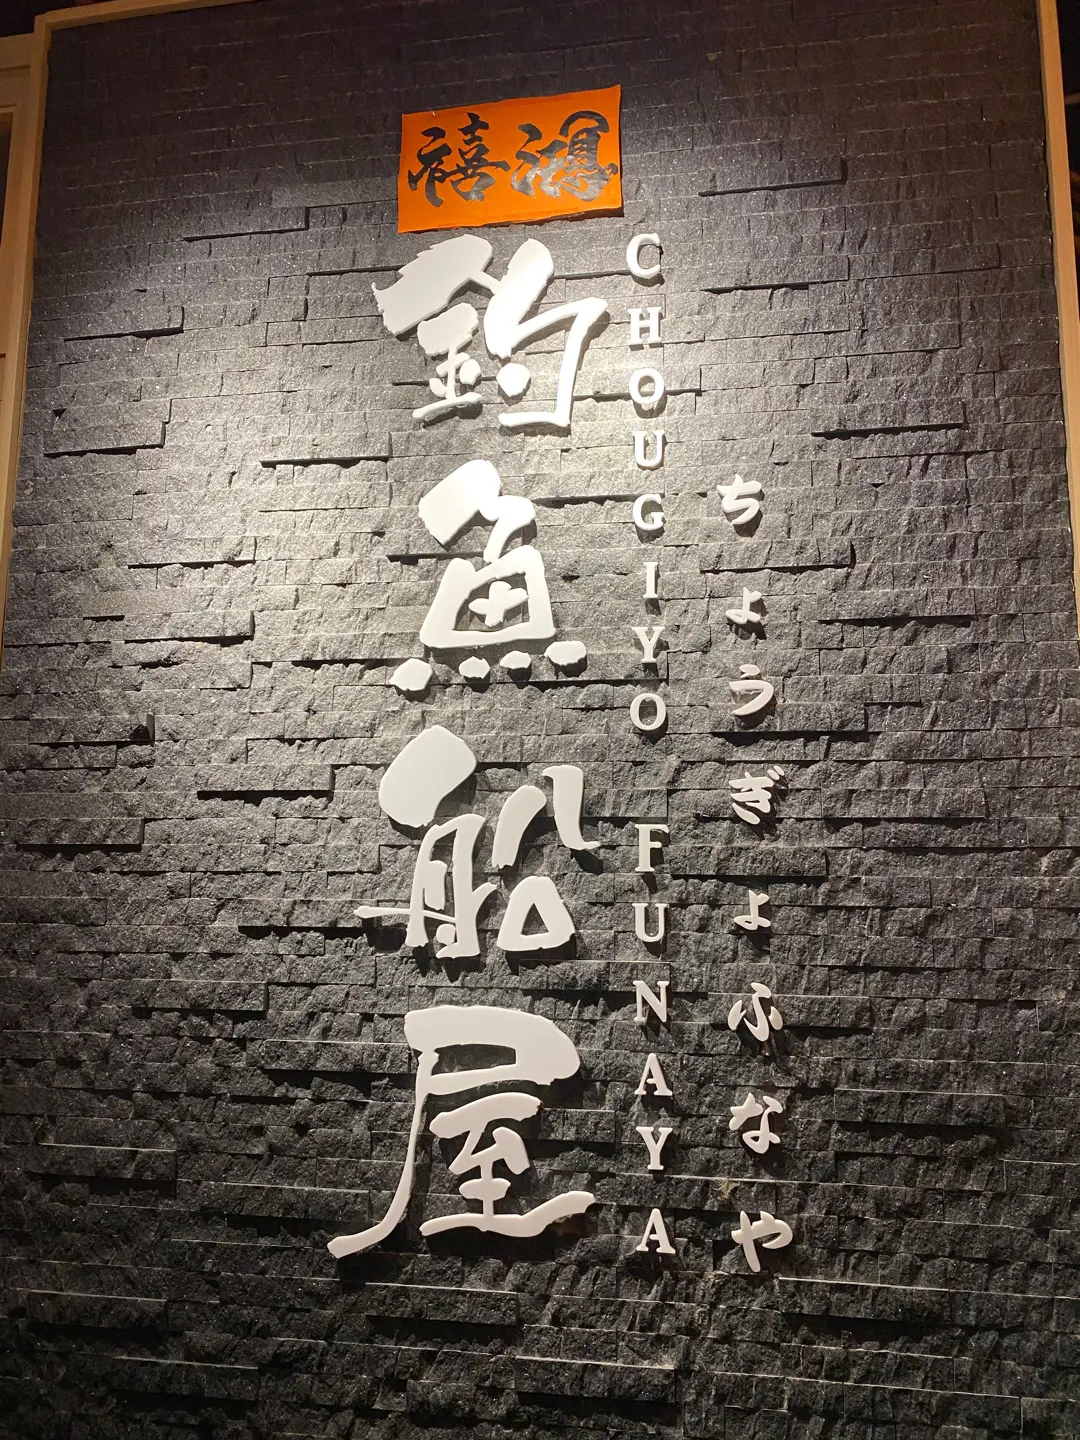 鴻禧
釣魚船屋
CHOUGIYO FUNAYA
ちょうぎょふなや